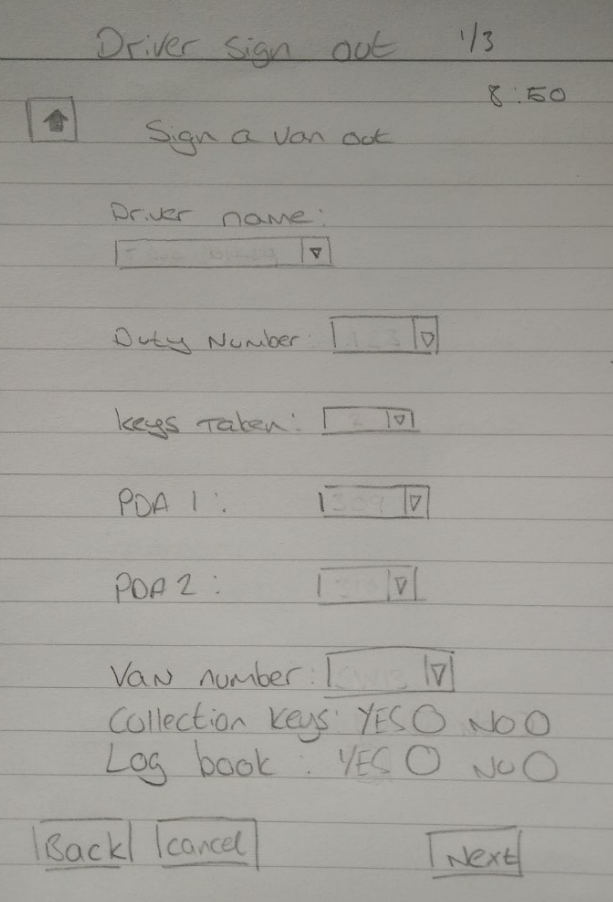 Driver sign out 1/3
8:50
Sign a van out
Driver name:
Duty Number:
Keys Taken:
PDA 1:
PDA 2:
Van number:
Collection keys: YES NO
Log book: YES NO
Back cancel Next